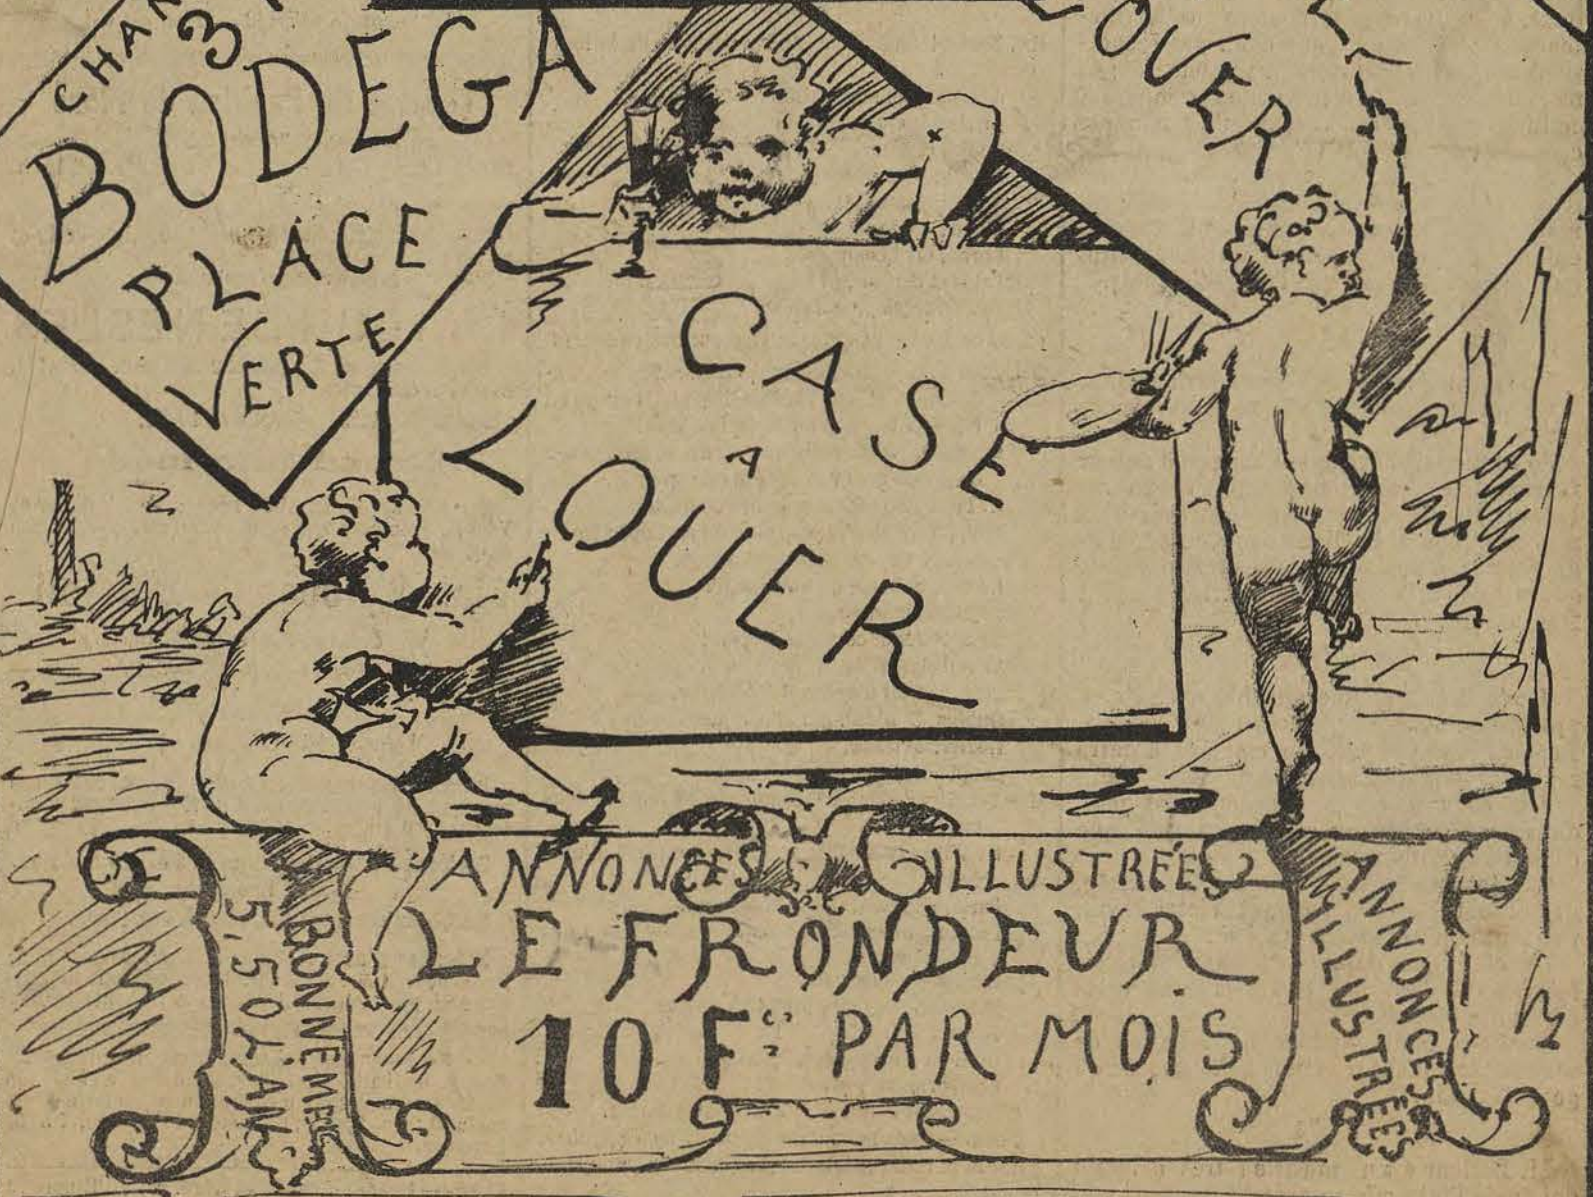 3
BODEGA
PLACE
VERTE
LOUER
CASE
A
LOUER
ANNONCES ILLUSTRÉES
LE FRONDEUR
10 Fs PAR MOIS
ABONNEMENTS
5,50 L'AN
ANNONCES
ILLUSTRÉES